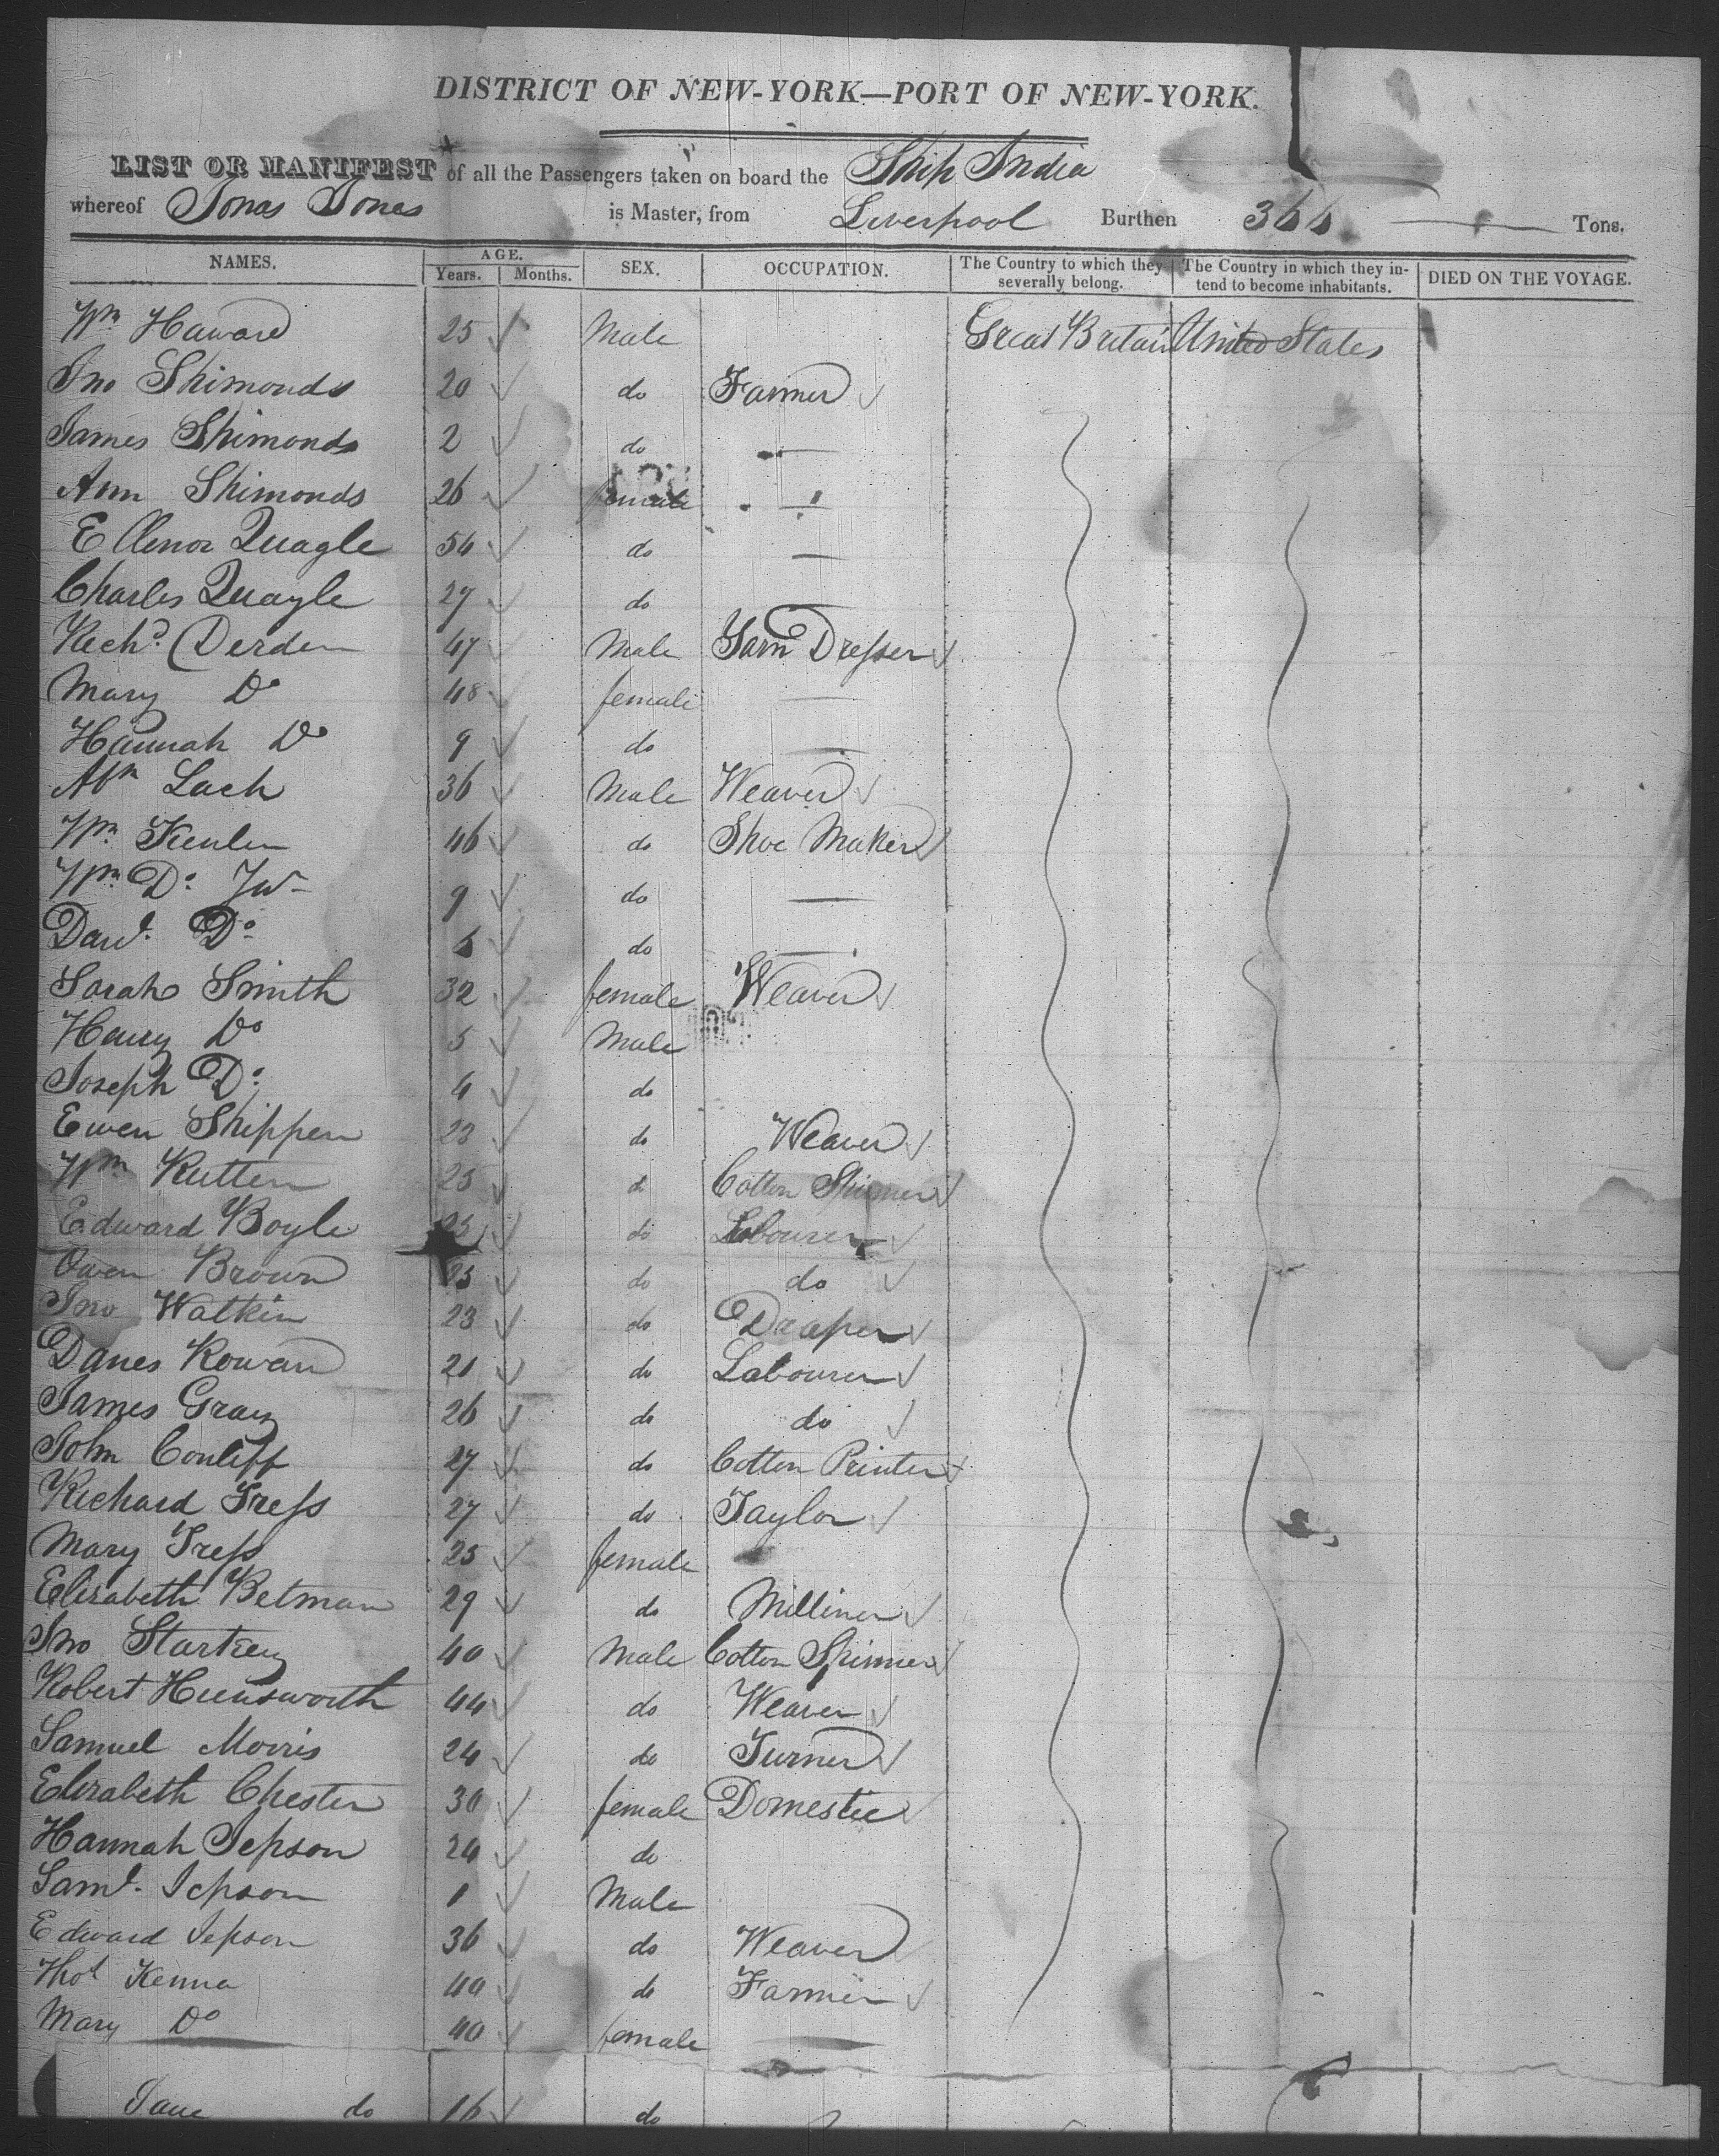 DISTRICT OF NEW-YORK—PORT OF NEW-YORK.
LIST OR MANIFEST of all the Passengers taken on board the Ship India
whereof Jonas Jones is Master, from Liverpool Burthen 366 Tons.
NAMES. AGE. Years. Months. SEX. OCCUPATION. The Country to which they severally belong. The Country in which they intend to become inhabitants. DIED ON THE VOYAGE.
Wm Haward 25 Male Great Britain United States
Jno Shimonds 20 do Farmer
James Shimonds 2 do —
Ann Shimonds 26 female —
Ellenor Quagle 54 do —
Charles Quayle 27 do —
Richd. Derden 47 Male Yarn Dresser
Mary Do 48 female —
Hannah Do 9 do —
Abm Lach 36 Male Weaver
Wm. Keulen 46 do Shoe Maker
Wm. Do. Jur 9 do —
Danl. Do. do —
Sarah Smith 32 female Weaver
Henry Do 5 Male
Joseph Do. 4 do
Ewen Shippen 23 do Weaver
Wm Rutten 25 do Cotton Spinner
Edward Boyle 25 do Labourer
Owen Brown 25 do do
Jno Watkin 23 do Draper
Danes Rowan 21 do Labourer
James Gray 26 do do
John Conliff 27 do Cotton Printer
Richard Tress 27 do Taylor
Mary Tress 25 female
Elisabeth Betman 29 do Milliner
Jno Starkey 40 Male Cotton Spinner
Robert Hunsworth 44 do Weaver
Samuel Morris 24 do Turner
Elizabeth Chester 30 female Domestic
Hannah Jepson 24 do
Saml. Jepson 1 Male
Edward Jepson 36 do Weaver
Thos Kenna 40 do Farmer
Mary Do 40 female —
Jane do 16 do